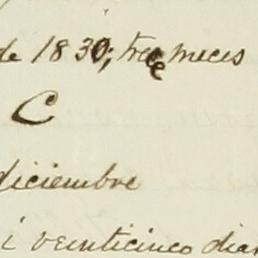 de 1830, trece meces
C
diciembre
i veinticinco dias